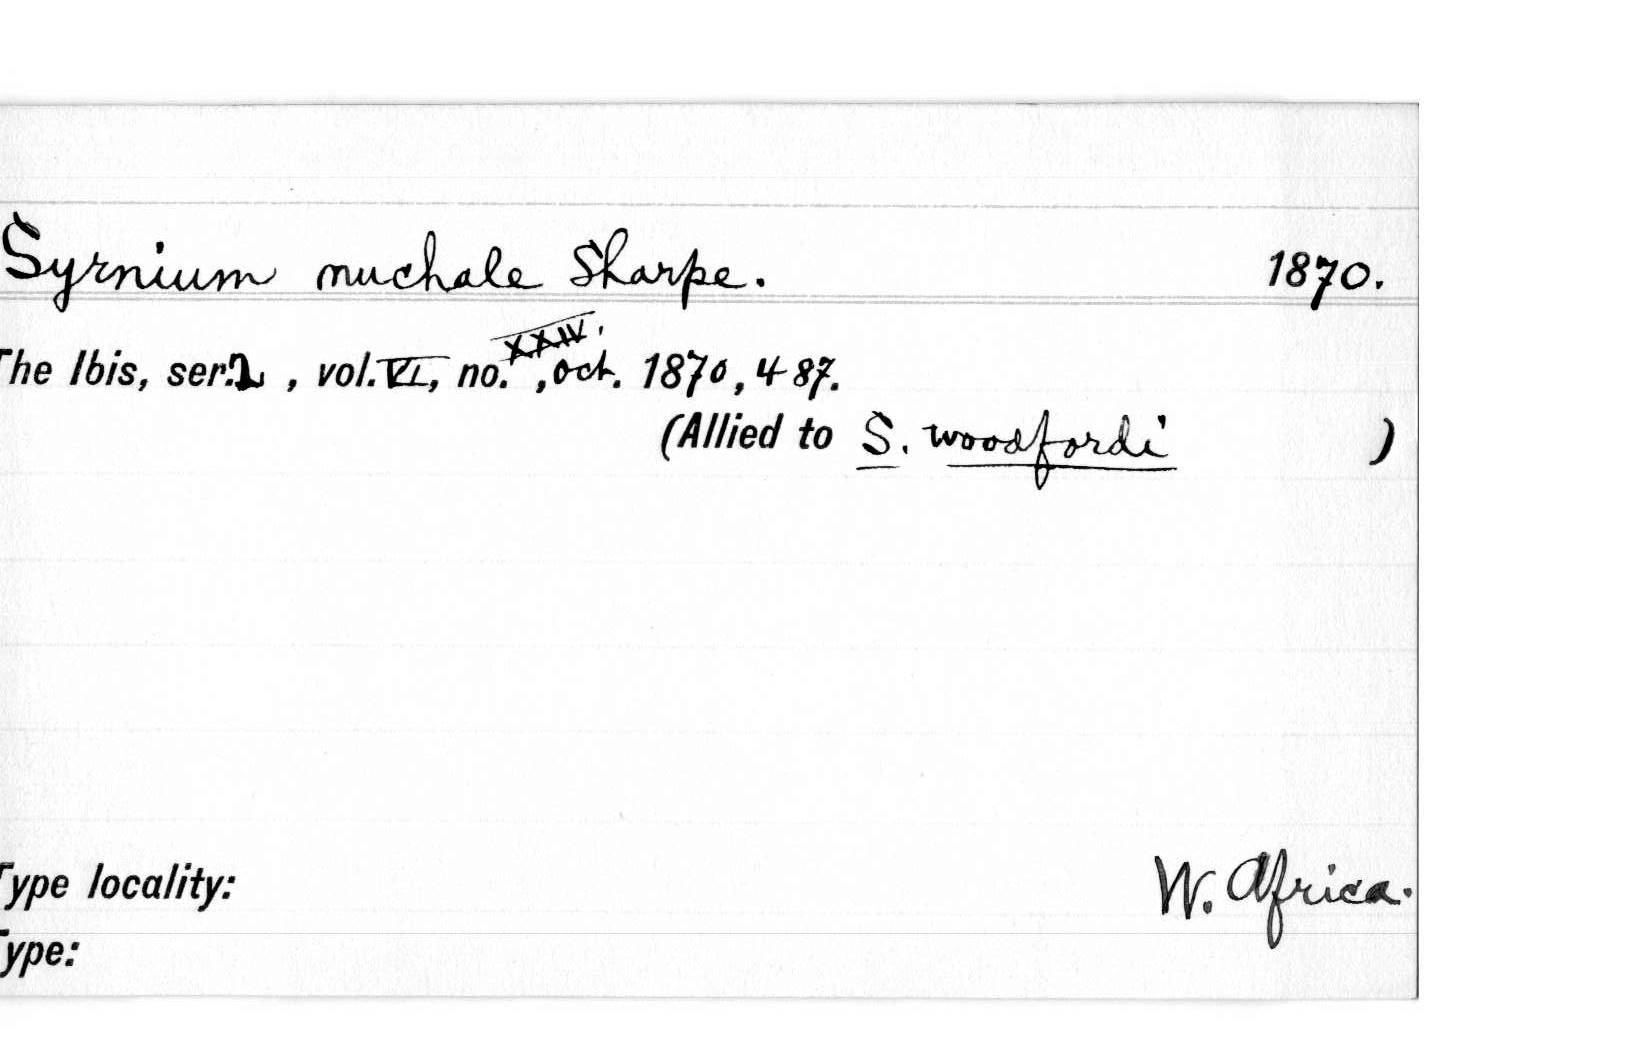 Syrnium nuchale Sharpe. 1870.
The Ibis, ser.2, vol. VI, no. XXIV, Oct. 1870, 487.
(Allied to S. woodfordi )
Type locality: W. Africa.
Type: